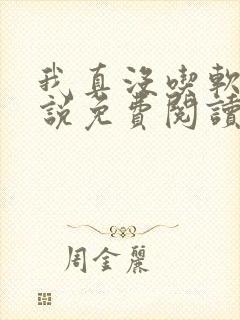 我真沒喫軟
說免費閱讀
周金麗